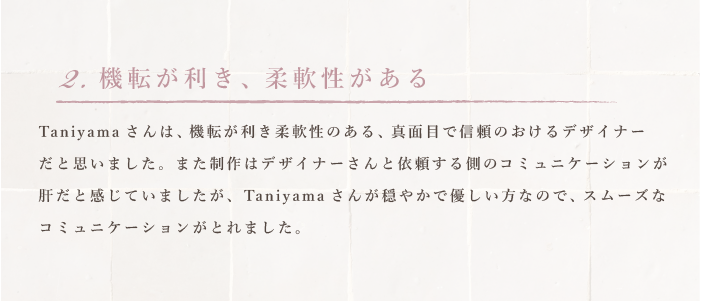 2. 機転が利き、柔軟性がある
Taniyama さんは、機転が利き柔軟性のある、真面目で信頼のおけるデザイナー
だと思いました。また制作はデザイナーさんと依頼する側のコミュニケーションが
肝だと感じていましたが、Taniyama さんが穏やかで優しい方なので、スムーズな
コミュニケーションがとれました。